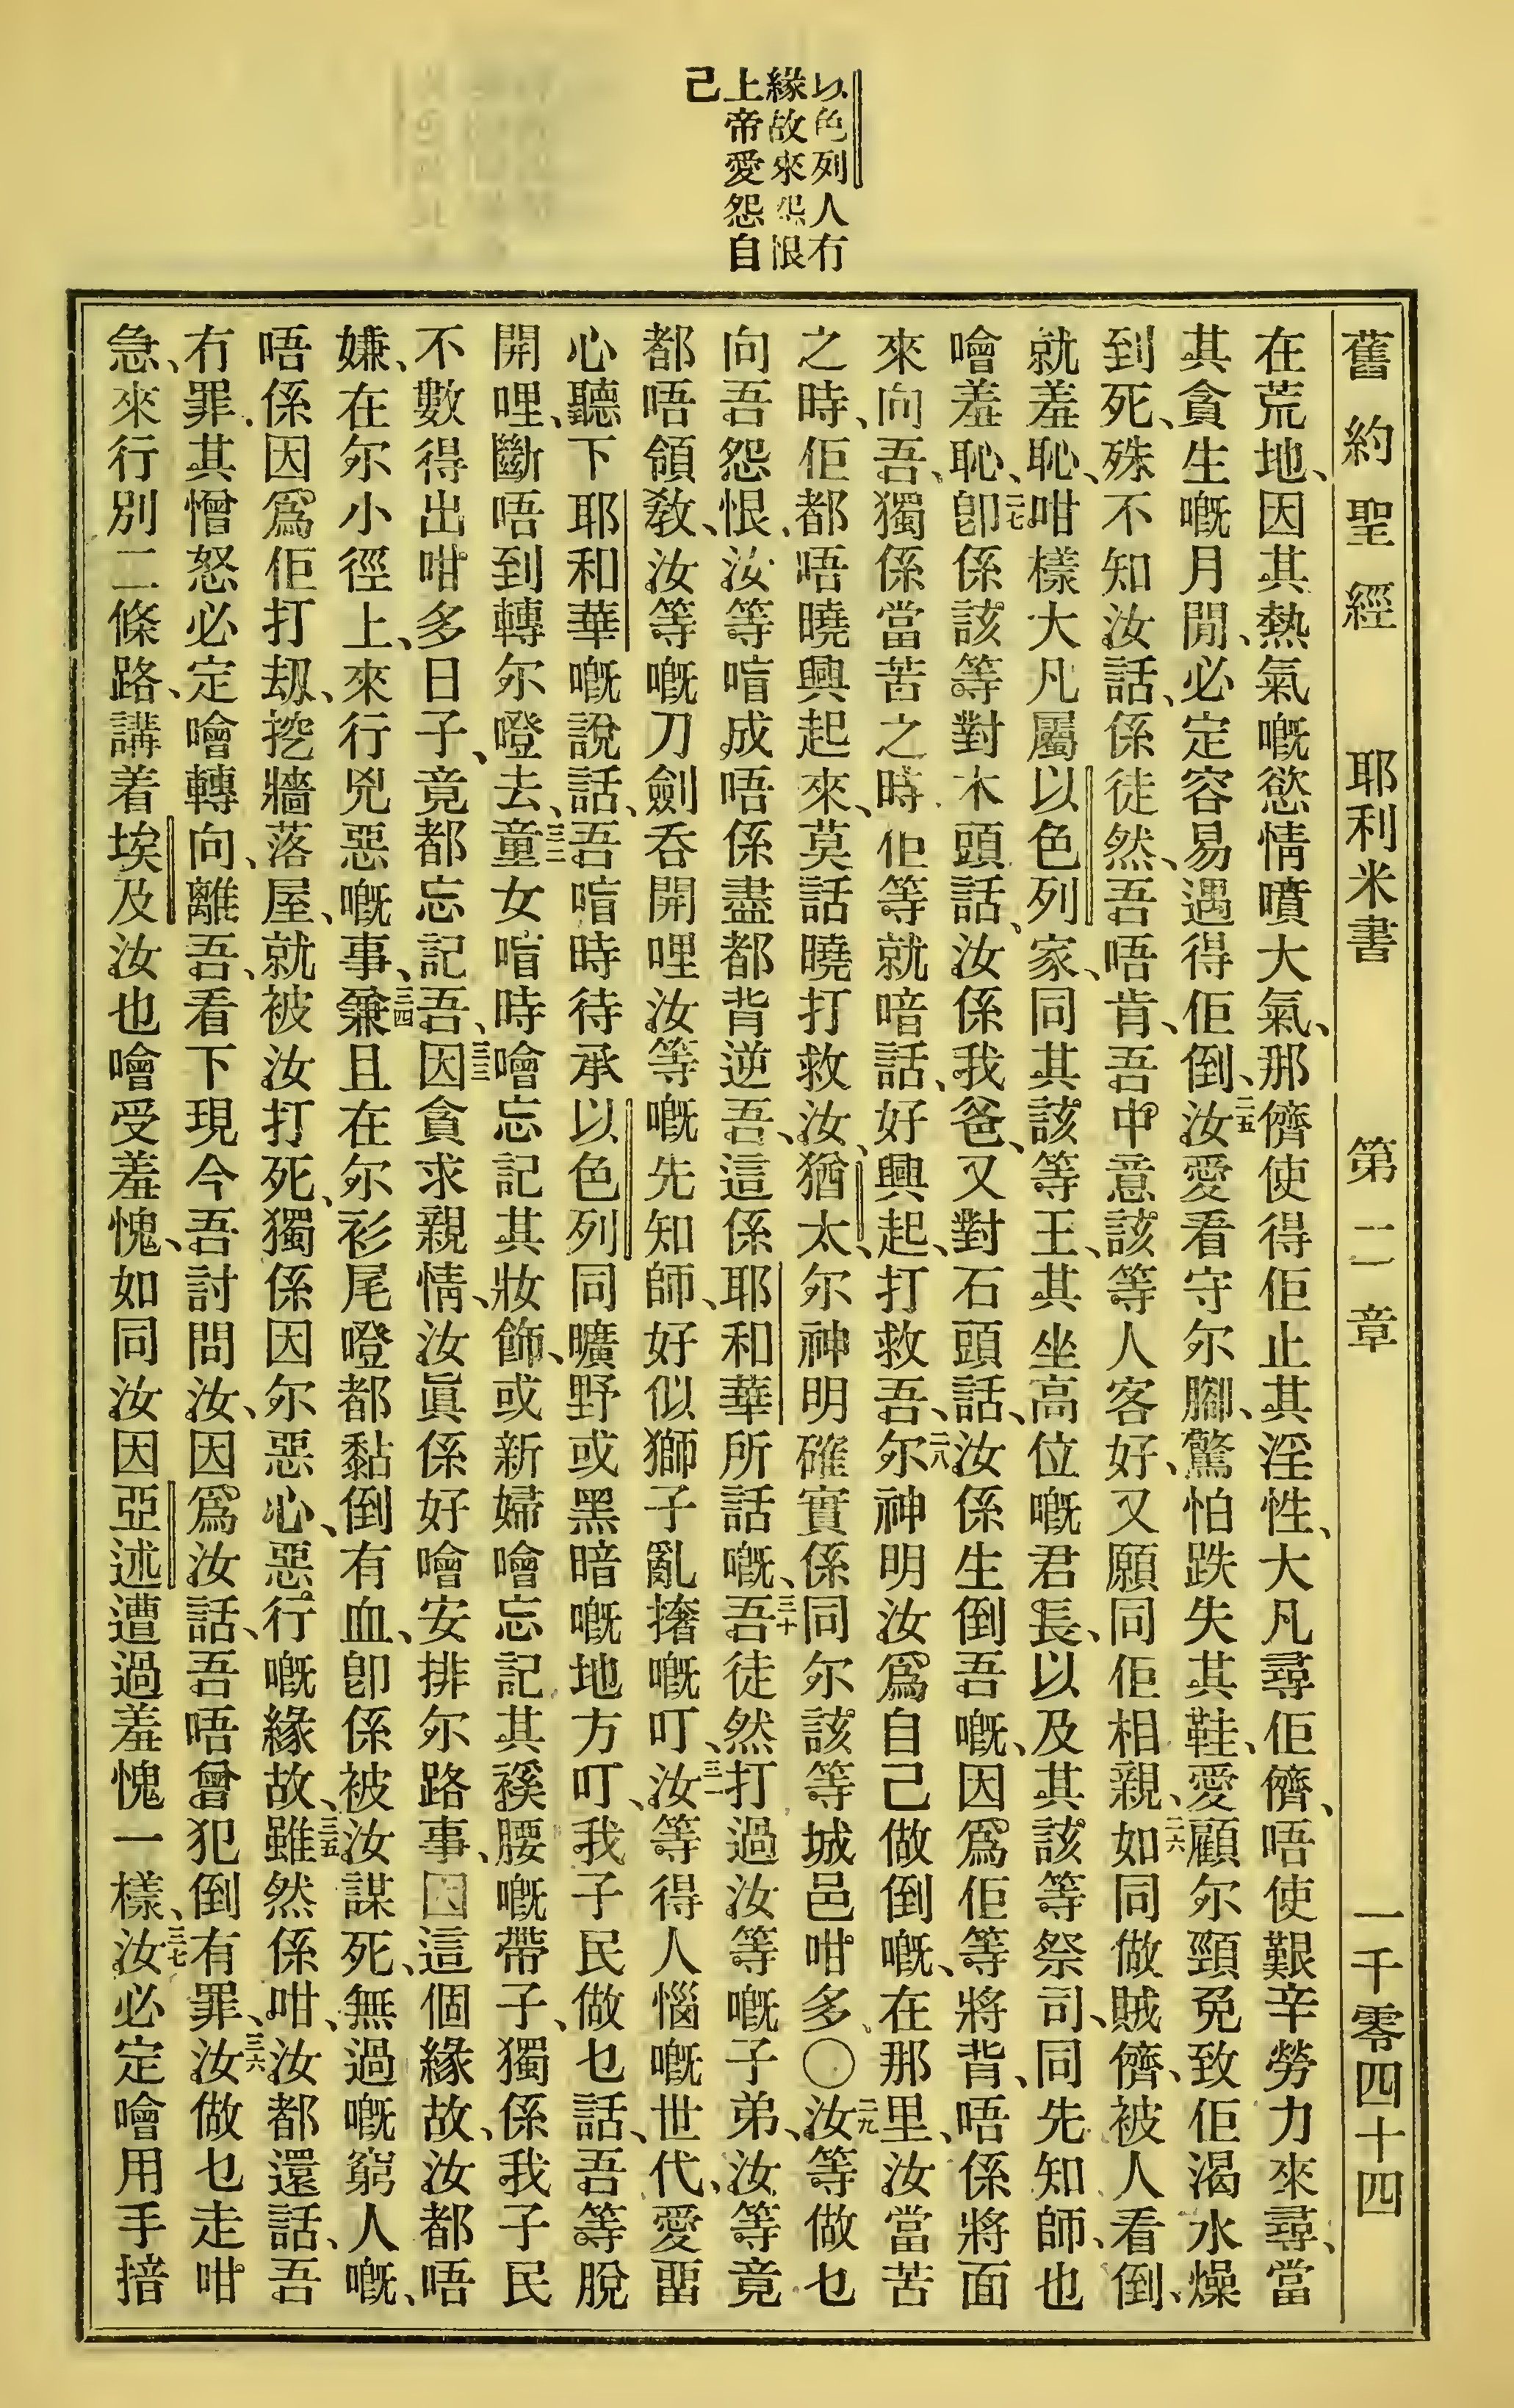 以色列人冇
緣故來怨恨
上帝愛怨自
己
舊約聖經 耶利米書 第二章 一千零四十四
在荒地、因其熱氣嘅慾情噴大氣、那儕使得佢止其淫性、大凡尋佢儕、唔使艱辛勞力來尋、當
其貪生嘅月間、必定容易遇得佢倒、二五汝愛看守尔腳、驚怕跌失其鞋、愛顧尔頸免致佢渴水燥
到死、殊不知汝話、係徒然、吾唔肯、吾中意該等人客好、又願同佢相親、二六如同做賊儕、被人看倒、
就羞恥、咁樣大凡屬以色列家、同其該等王、其坐高位嘅君長、以及其該等祭司、同先知師、也
噲羞恥、二七卽係該等對木頭話、汝係我爸、又對石頭話、汝係生倒吾嘅、因爲佢等將背、唔係將面
來向吾、獨係當苦之時、佢等就喑話、好興起、打救吾、二八尔神明汝爲自己做倒嘅、在那里、汝當苦
之時、佢都唔曉興起來、莫話曉打救汝、猶太、尔神明確實係同尔該等城邑咁多〇二九汝等做乜
向吾怨恨、汝等喑成唔係盡都背逆吾、這係耶和華所話嘅、三十吾徒然打過汝等嘅子弟、汝等竟
都唔領敎、汝等嘅刀劍呑開哩汝等嘅先知師、好似獅子亂撦嘅叮、三一汝等得人惱嘅世代、愛畱
心聽下耶和華嘅說話、吾喑時待承以色列同曠野或黑暗嘅地方叮、我子民做乜話、吾等脫
開哩、斷唔到轉尔噔去、三二童女喑時噲忘記其妝飾、或新婦噲忘記其䙡腰嘅帶子、獨係我子民
不數得出咁多日子、竟都忘記吾、三三因貪求親情、汝眞係好噲安排尔路事、因這個緣故、汝都唔
嫌、在尔小徑上、來行兇惡嘅事、三四兼且在尔衫尾噔都黏倒有血、卽係被汝謀死、無過嘅窮人嘅、
唔係因爲佢打刼、挖牆落屋、就被汝打死、獨係因尔惡心、惡行嘅緣故、三五雖然係咁、汝都還話、吾
冇罪、其憎怒必定噲轉向、離吾、看下現今吾討問汝、因爲汝話、吾唔曾犯倒有罪、三六汝做乜走咁
急、來行別二條路、講着埃及汝也噲受羞愧、如同汝因亞述遭過羞愧一樣、三七汝必定噲用手揞